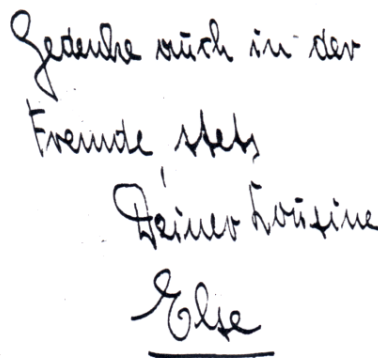 Gedenke auch in der
Fremde stets
Deiner Cousine
Else